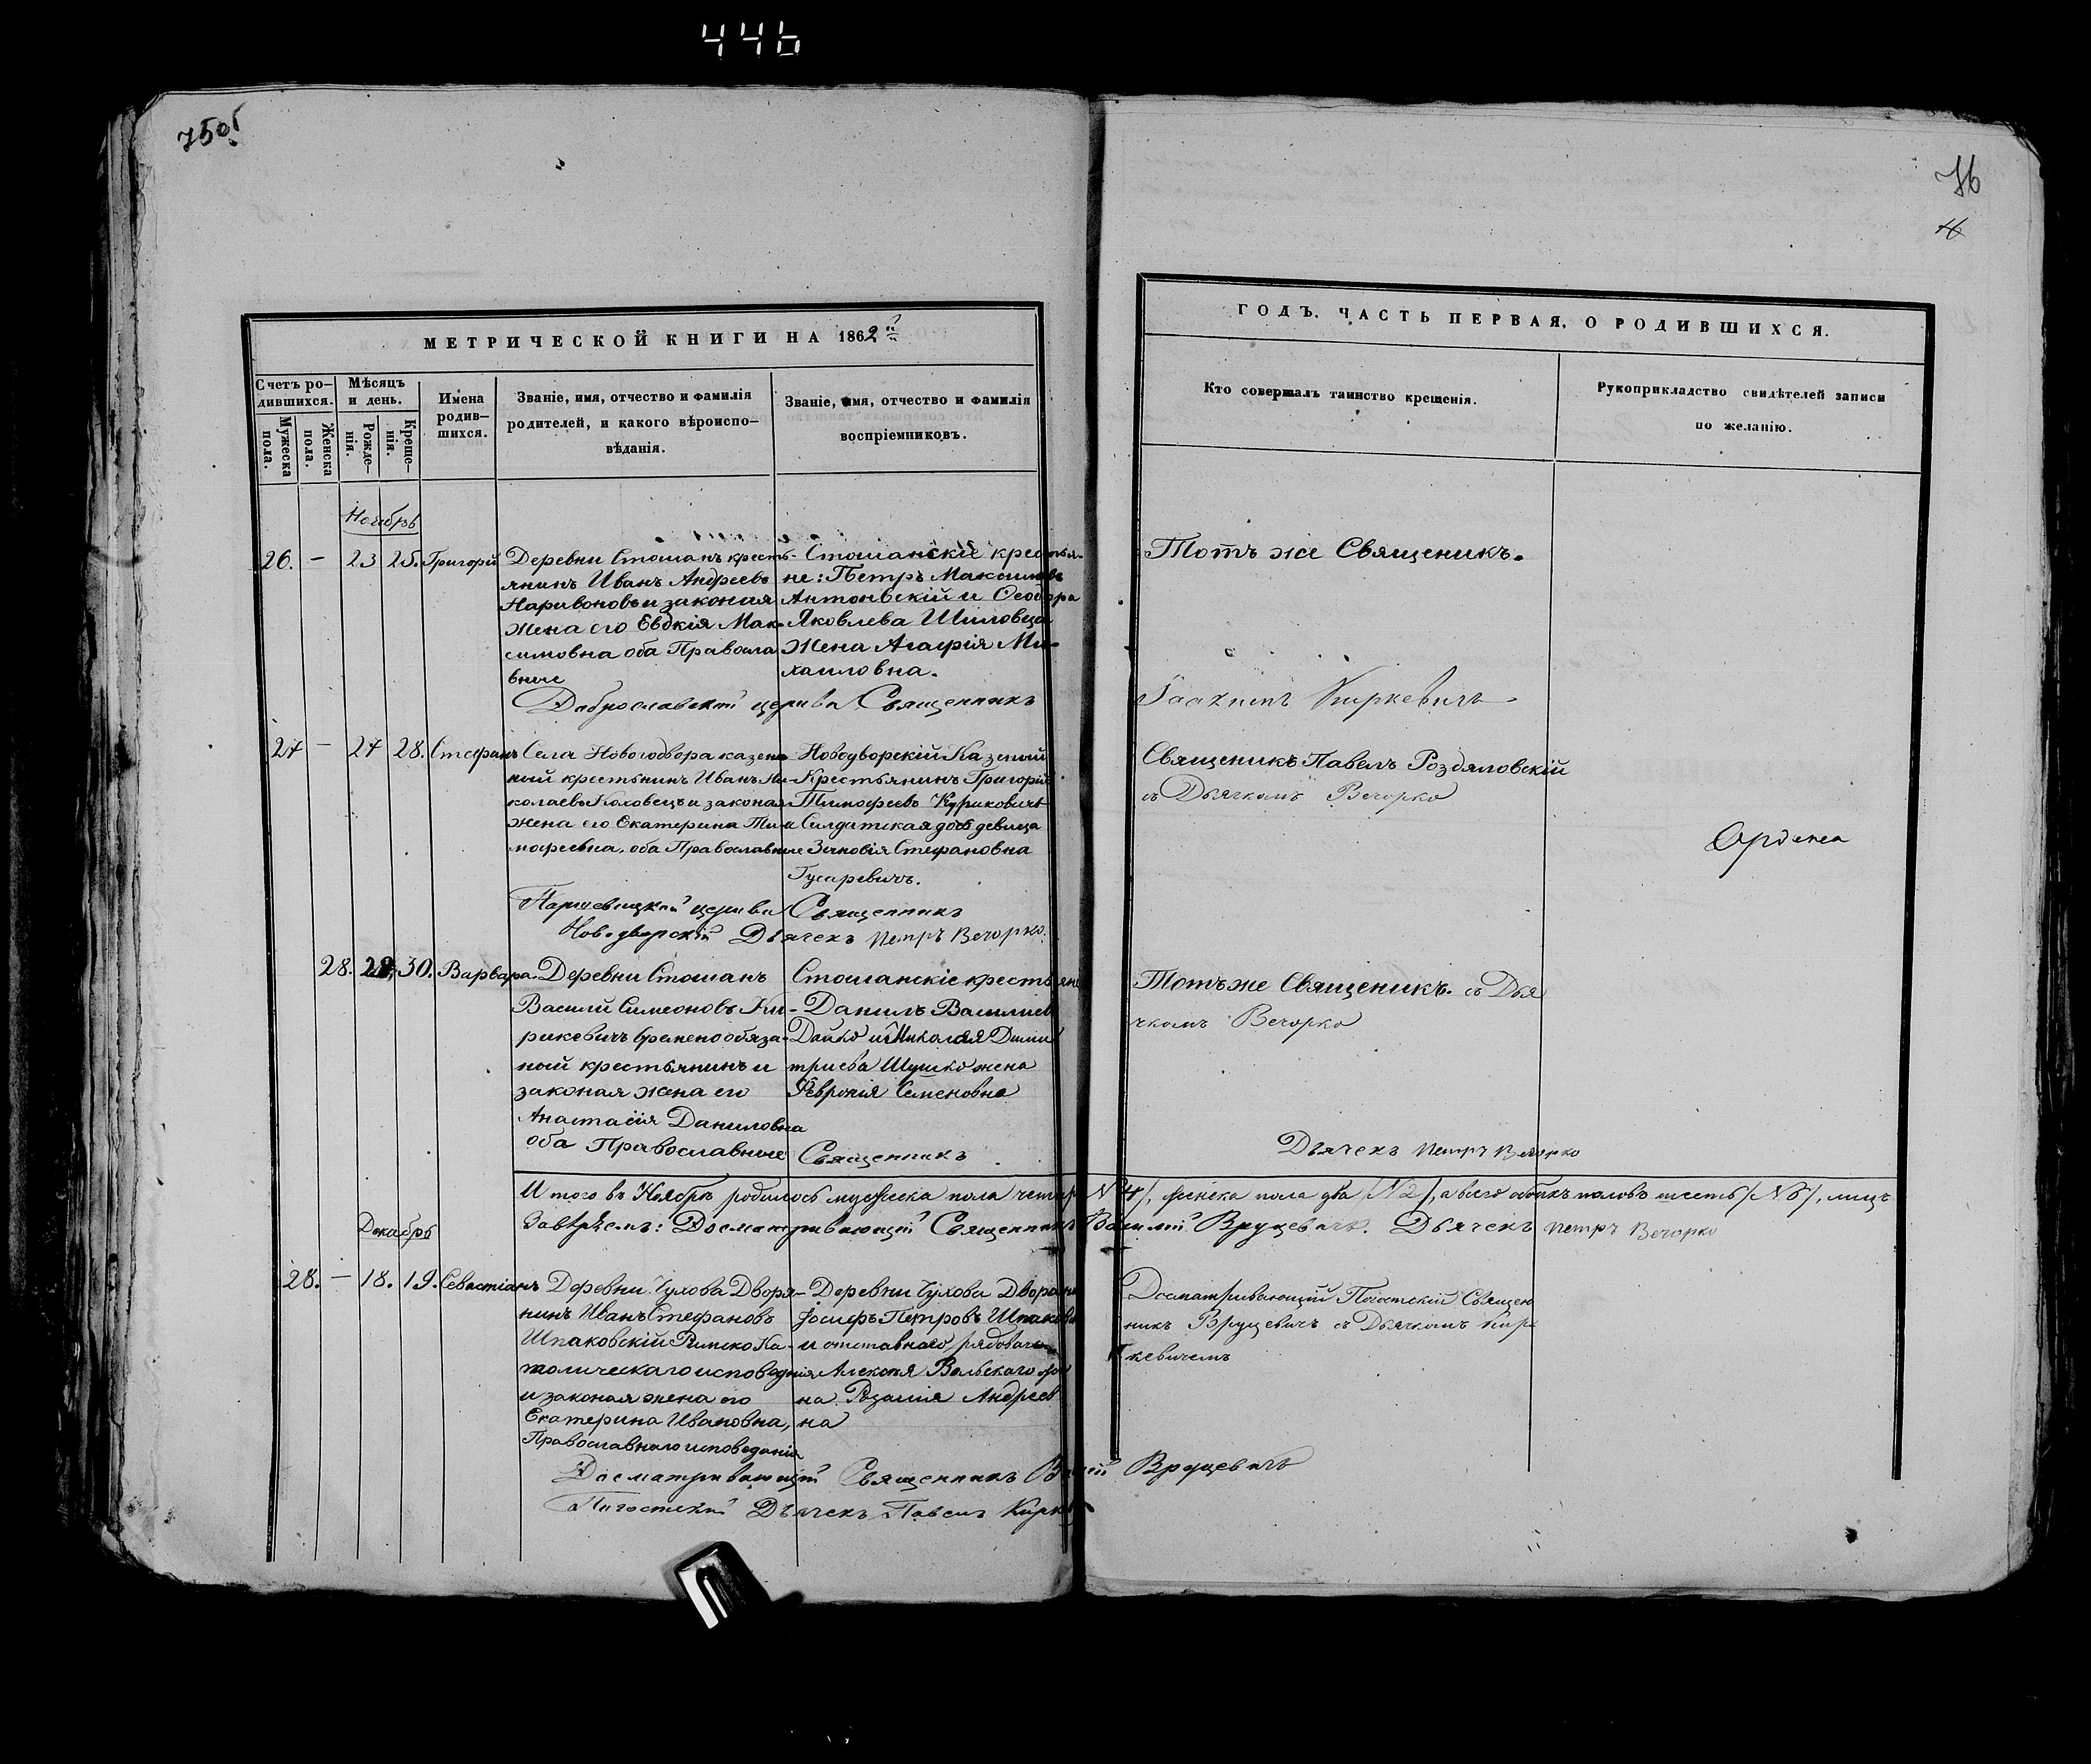 446
75об
76
МЕТРИЧЕСКОЙ КНИГИ НА 1862й
Счетъ ро-
дившихся.
Мужеска
пола.
Женска
пола.
Мѣсяцъ
и день.
Рожде-
нія.
Креще-
нія.
Имена
родив-
шихся.
Званіе, имя, отчество и фамилія
родителей, и какого вѣроиспо-
вѣданія.
Званіе, имя, отчество и фамилія
воспріемниковъ.
ГОДЪ. ЧАСТЬ ПЕРВАЯ, О РОДИВШИХСЯ.
Кто совершалъ таинство крещенія.
Рукоприкладство свидѣтелей записи
по желанію.
Ноябрь
26. — 23 25. Григорій
Деревни Стошанъ кресть-
янинъ Иванъ Андреевъ
Наривоновъ и законая
жена его Евдкія Мак-
симовна оба Правосла
вные
Стошанскіе крестья-
не: Петръ Максимовъ
Антонвскій и Ѳеодора
Яковлева Шиловца
жена Агафія Ми-
хаиловна.
Тотъ же Священикъ.
Доброславской церкви Священникъ
Іоакимъ Киркевичъ
27 — 27 28. Стефанъ
Села Новогодвора казен
ный крестьнинъ Иванъ Ни-
колаевъ Коховецъ и законая
жена его Екатерина Ти-
мофеевна. оба Православные
Новодворскій Казеный
Крестьянинъ Григорій
Тимофеевъ Куриковичъ
и Солдатская дочь девица
Зеновія Стефановна
Гусаревичъ.
Священикъ Павелъ Роздяловскій
съ Дьячкомъ Вечорко
Паршевицкой церкви Священникъ
Ново-дворскій Дьячекъ Петръ Вечорко.
28. 28, 30. Варвара.
Деревни Стошанъ
Василй Симеоновъ Ки-
рикевичъ временообяза-
ный крестьянинъ и
законая жена его
Анастасія Даниловна
оба Православные
Стошанскіе крестьяне
Данилъ Василиев
Дайко и Николая Дими
триева Шушко жена
Февронія Семеновна
Священникъ
Тотъ же Священикъ. съ Дья
чкомъ Вечорко
Дьячекъ Петръ Вечорко
Итого въ Ноябрѣ родилось мужеска пола четыр №4/, женска пола два /№2/, а всего обоихъ половъ шесть /№6/, лицъ
Завѣряемъ: Досматривающій Священникъ Василій Вруцевичъ. Дьячекъ Петръ Вечорко
Декабрь
28. — 18. 19. Севастіанъ
Деревни Чухова Дворя-
нинъ Иванъ Стефановъ
Шпаковскій Римско Ка-
толическаго исповеднія
и законая жена его
Екатерина Ивановна,
Православнаго исповеданія
Деревни Чухова Дворяни
Іосифъ Петровъ Шпаковс
и отставнаго рядоваго
Алексея Вольскаго же
на Розалія Андреев
на
Досматривающій Погостскій Священ
никъ Вруцевичъ съ Дьячкомъ Кир
кевичемъ
Досматривающій Священникъ Василій Вруцевичъ
Погостскій Дьячекъ Павелъ Кирк